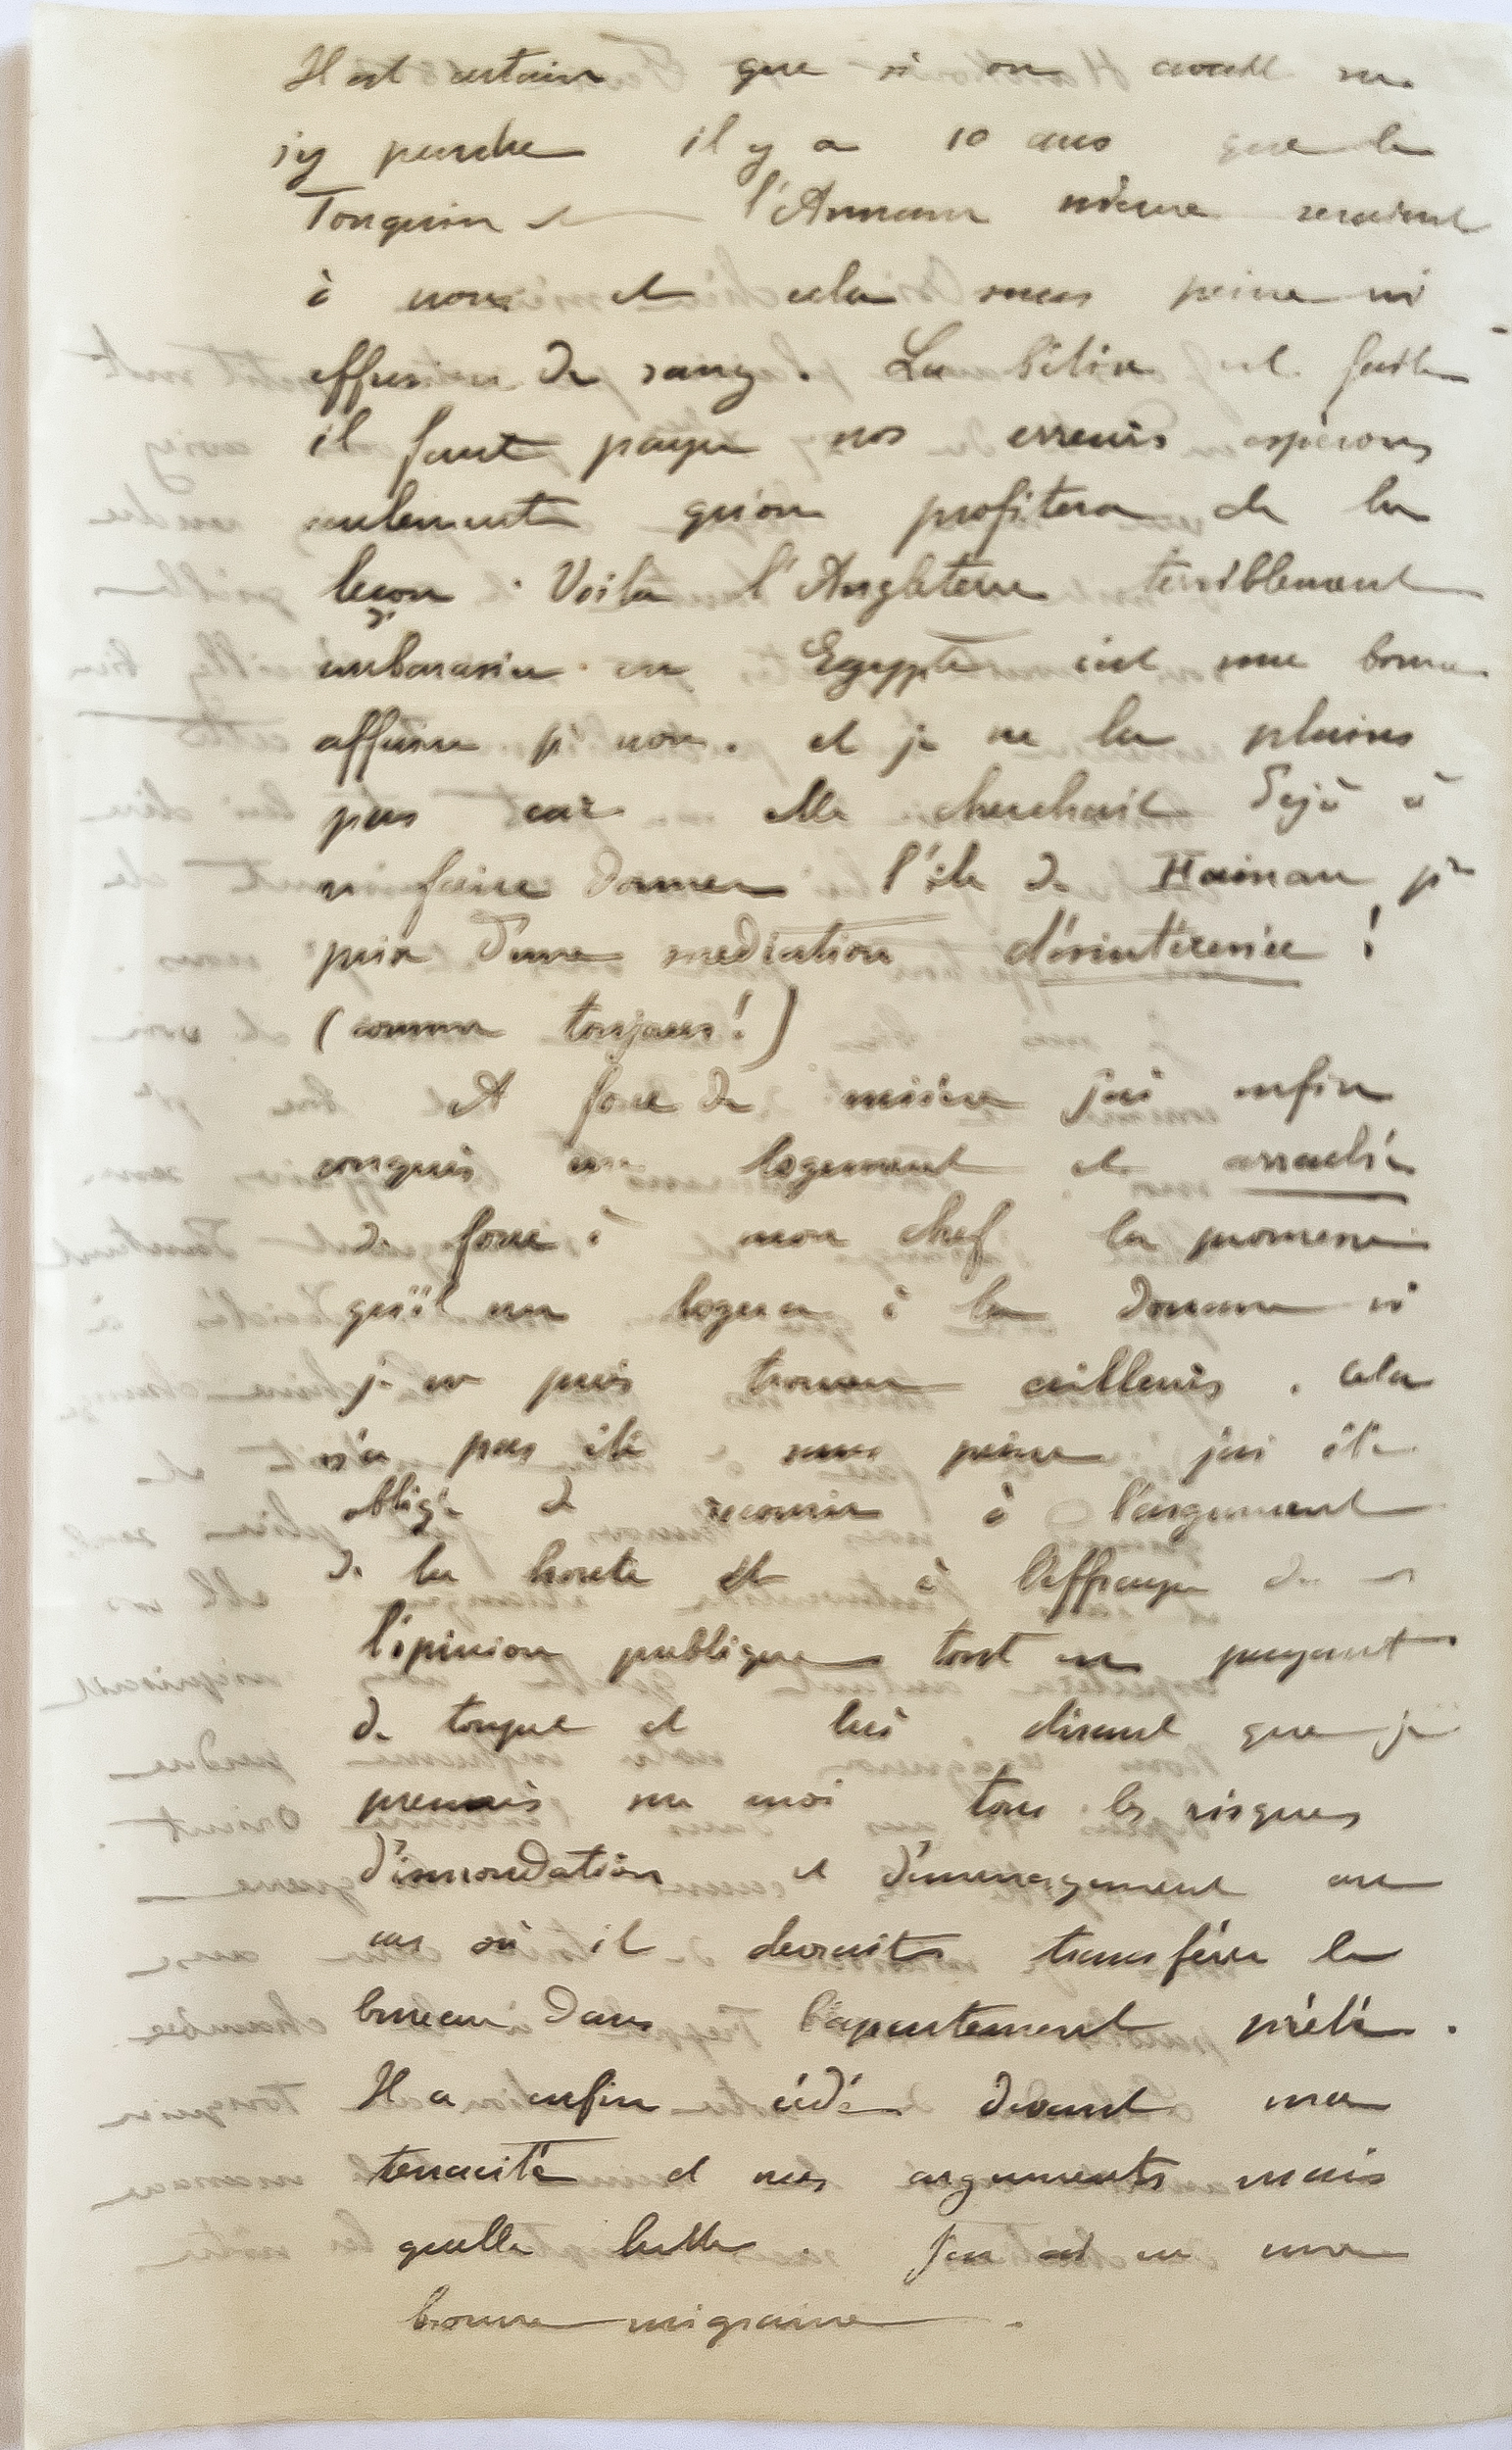 Il est certain que si on avait su
s'y prendre il y a 10 ans que le
Tonquin et l'Annam même seraient
à nous et cela sans peine ni
effusion de sang. La bêtise est faite
il faut payer nos erreurs espérons
seulement qu'on profitera de la
leçon. Voilà l'Angleterre terriblement
embarassée en Egypte c'est une bonne
affaire pr nous. et je ne la plains
pas car elle cherchait déjà à
se faire donner l'île de Hainan pr
prix d'une mediation désintéressée !
(comme toujours!)
A force de misère j'ai enfin
conquis un logement et arraché
de force à mon chef la promesse
qu'il me logera à la Douane si
je ne puis trouver ailleurs. Cela
n'a pas été sans peine j'ai été
obligé de recourir à l'argument
de la honte et à l'effraye de
l'opinion publique tout en payant
de toupet et lui disant que je
prenais sur moi tous les risques
d'innondation et d'emenagement au
cas où il devrait transférer le
bureau dans l'apartement prêté.
Il a enfin cédé devant ma
tenacité et mes arguments mais
quelle lutte. J'en ai eu une
bonne migraine.